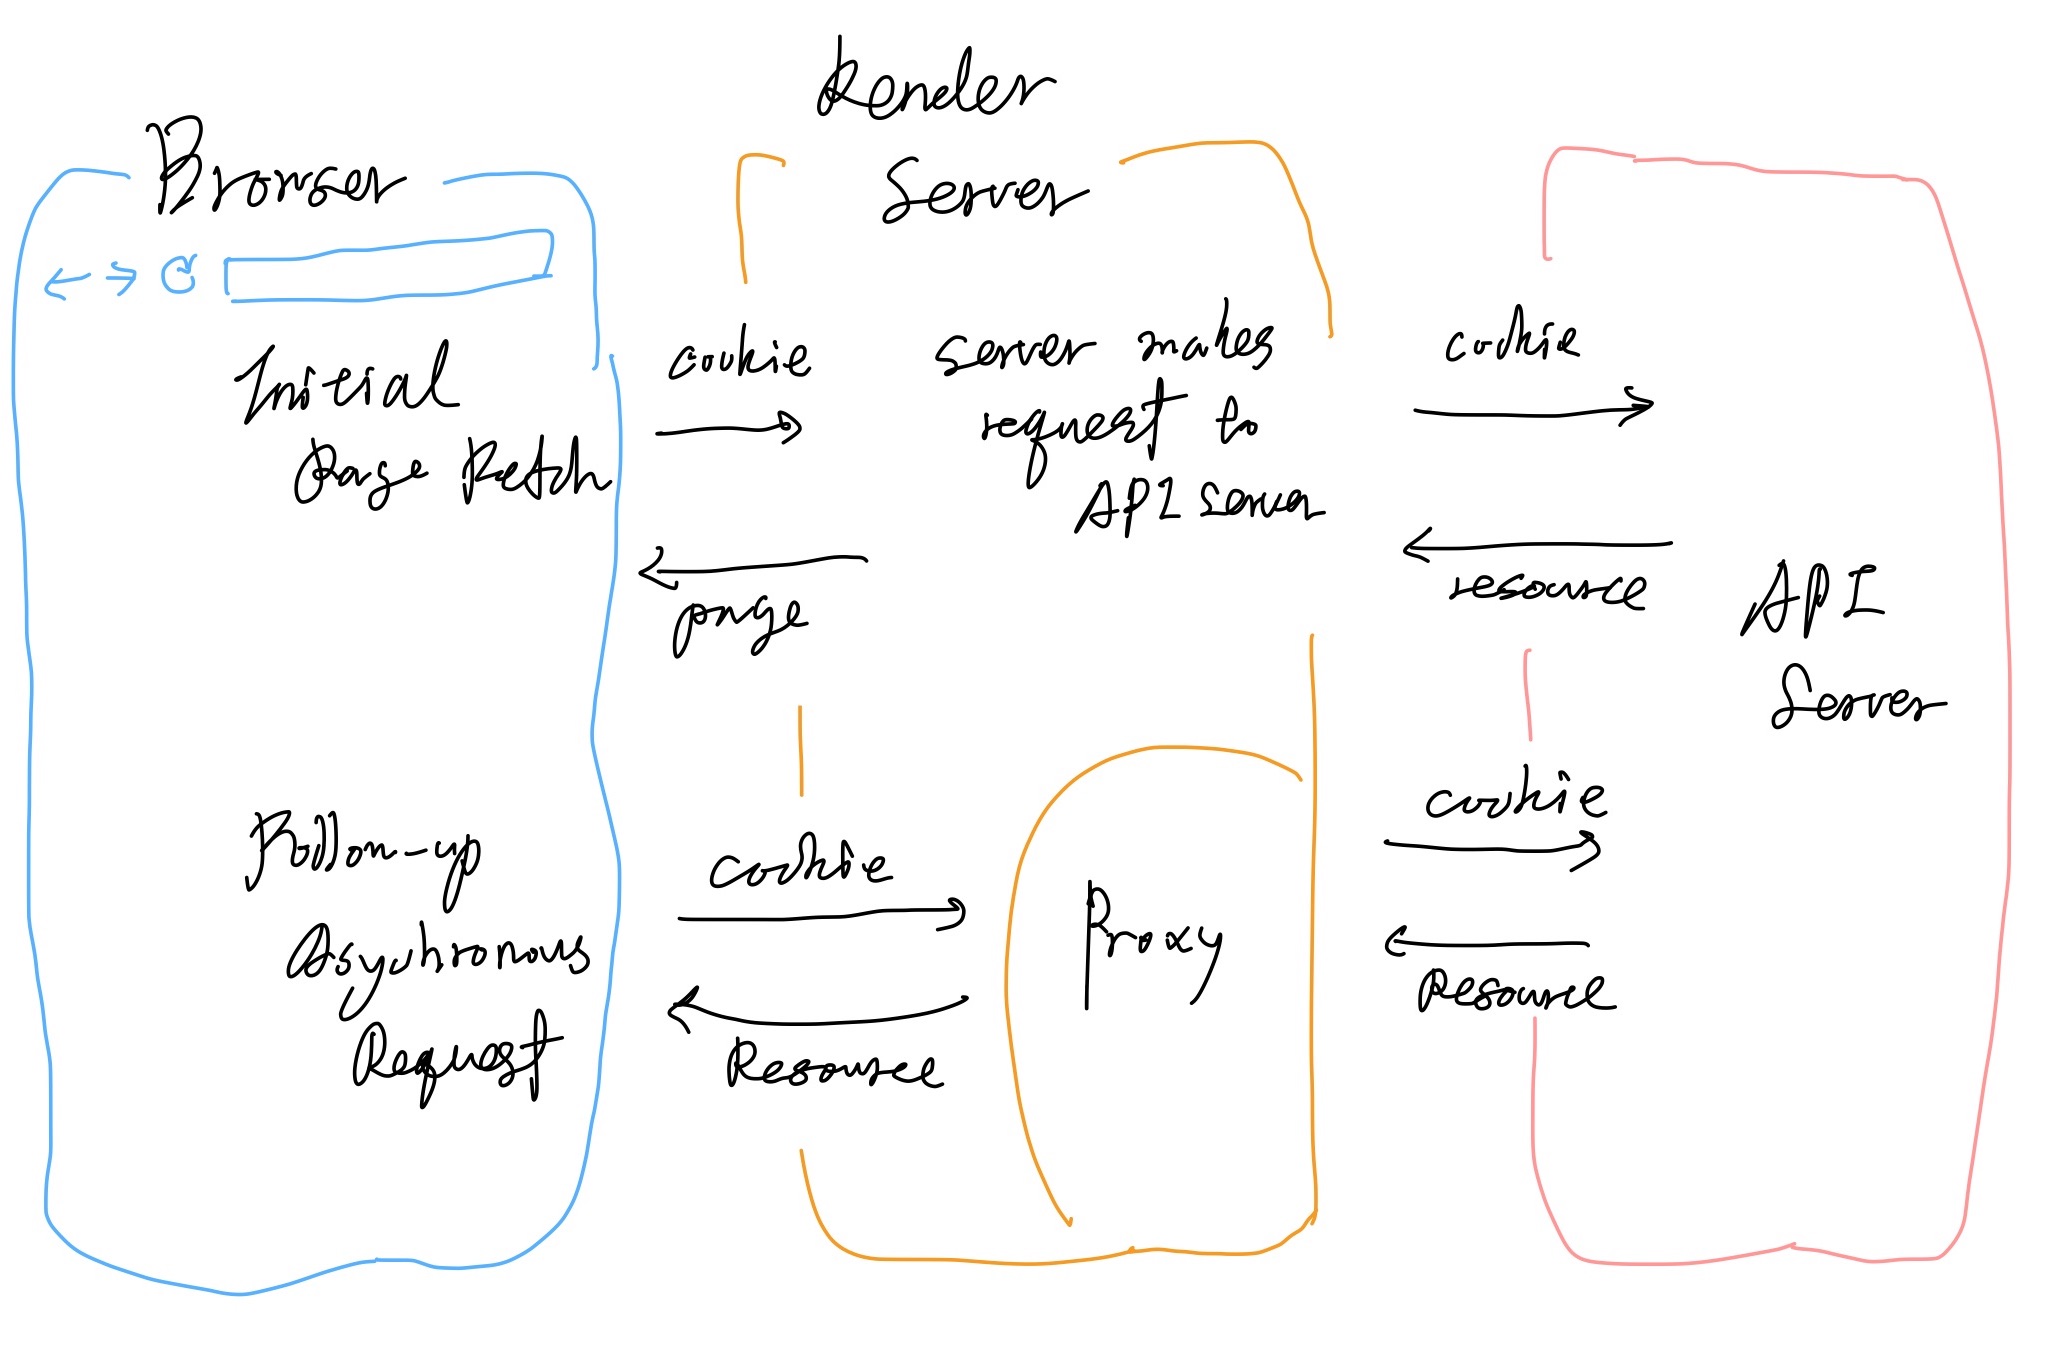 Render
Server
Browser
Initial
Page Fetch
cookie
page
server makes
request to
API server
cookie
resource
API
Server
Follow-up
Asychronous
Request
cookie
Resource
Proxy
cookie
Resource